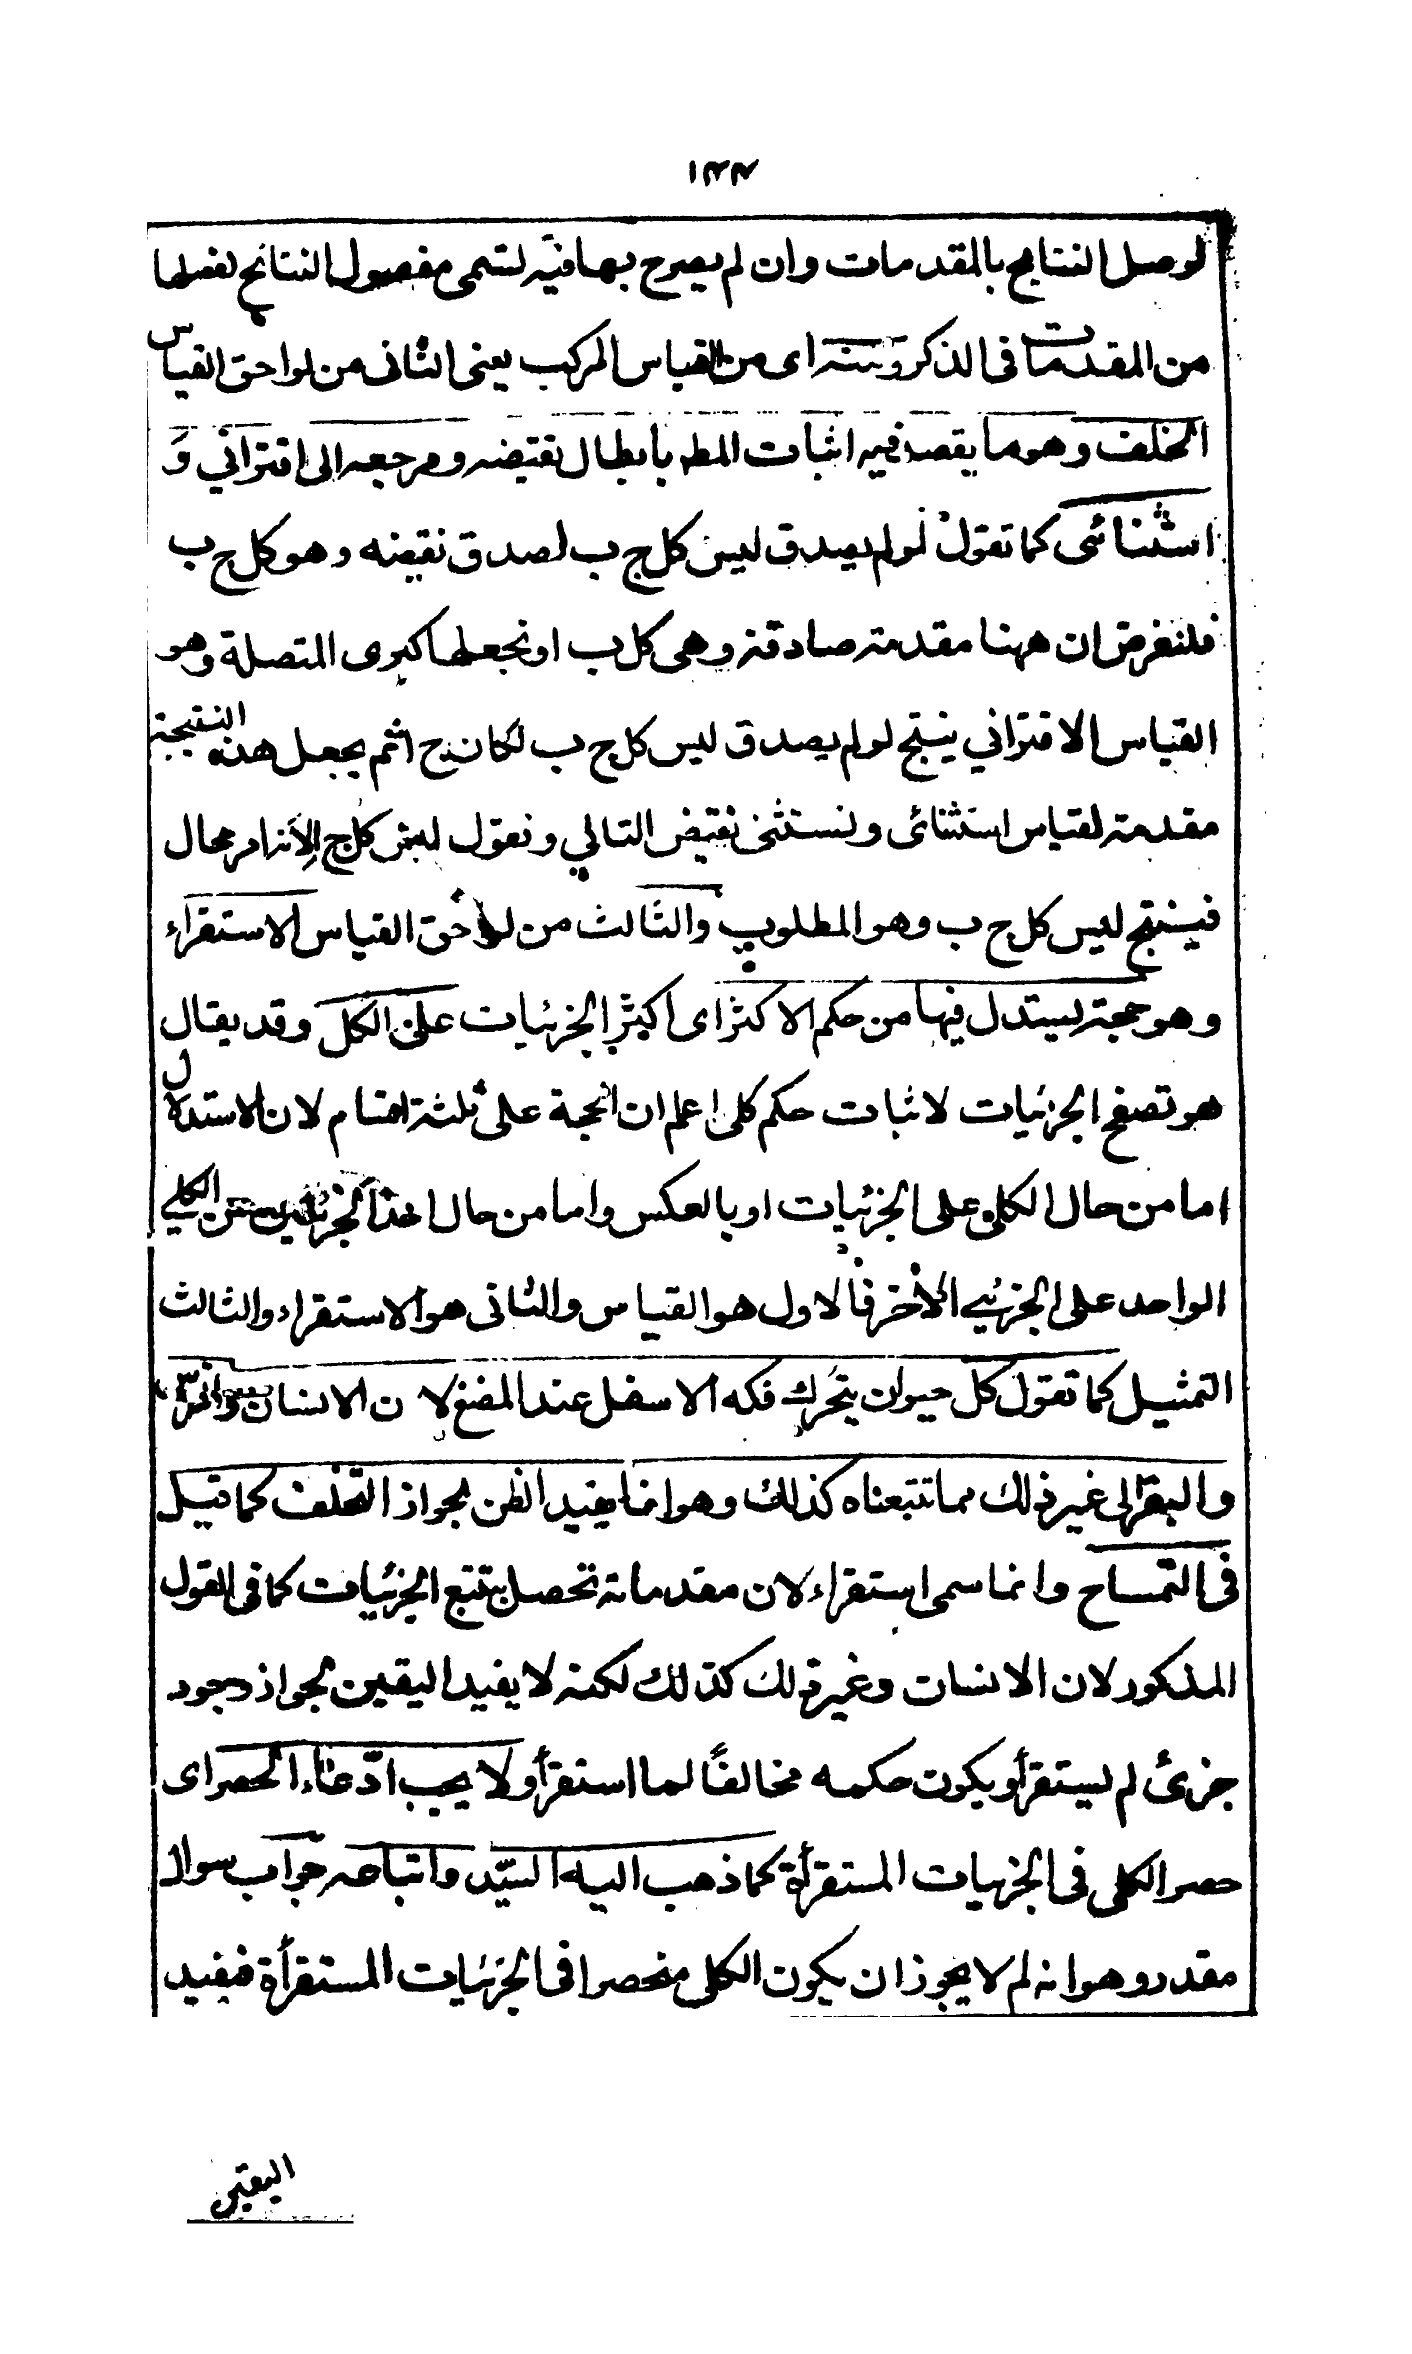 ١٣٣
لوصل النتايج بالمقدمات وان لم يصرح بها فيه لتسمى مفصول النتايج لفصلها
من المقدمات فى الذكر ومنه اى من القياس المركب يعنى الثانى من لواحق القياس
الخلف وهو ما يقصد فيه اثبات المط بابطال نقيضه ومرجعه الى اقترانى و
استثنائى كما تقول لو لم يصدق ليس كل ج ب لصدق نقيضه وهو كل ج ب
فلنفرض ان ههنا مقدمة صادقة وهى كل ب ا ونجعلها كبرى المتصلة وهو
القياس الاقترانى ينتج لو لم يصدق ليس كل ج ب لكان ج ا ثم يجعل هذه النتيجة
مقدمة لقياس استثنائى ونستثنى نقيض التالي ونقول ليس كل ج ا لانه امر محال
فينتج ليس كل ج ب وهو المطلوب والثالث من لواحق القياس الاستقراء
وهو حجة يستدل فيها من حكم الاكثر اى اكثر الجزئيات على الكل وقد يقال
هو تصفح الجزئيات لاثبات حكم كلى اعلم ان الحجة على ثلثة اقسام لان الاستدلال
اما من حال الكلى على الجزئيات او بالعكس واما من حال احد الجزئيين من الكلي
الواحد على الجزئي الاخر فالاول هو القياس والثانى هو الاستقراء والثالث
التمثيل كما تقول كل حيوان يتحرك فكه الاسفل عند المضغ لان الانسان والفرس
والبقر الى غير ذلك مما تتبعناه كذلك وهو انما يفيد الظن لجواز التخلف كما قيل
فى التمساح وانما سمى استقراء لان مقدماته تحصل بتتبع الجزئيات كما فى القول
المذكور لان الانسان وغير ذلك كذلك لكنه لا يفيد اليقين لجواز وجود
جزئ لم يستقرأ ويكون حكمه مخالفًا لما استقرأ ولا يجب ادّعاء الحصر اى
حصر الكلى فى الجزئيات المستقرأة كما ذهب اليه السيّد واتباعه جواب سوال
مقدر وهو انه لم لا يجوز ان يكون الكلى منحصرا فى الجزئيات المستقرأة فيفيد
اليقين